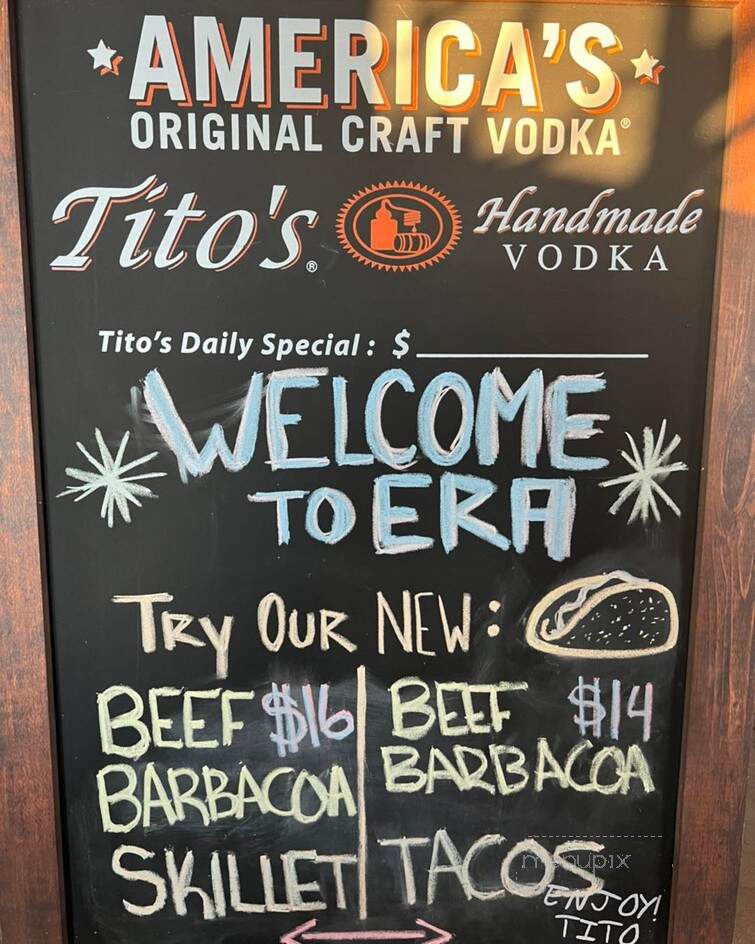 AMERICA'S
ORIGINAL CRAFT VODKA®
Tito's® Handmade
VODKA
Tito's Daily Special : $
WELCOME
TO ERA
TRY OUR NEW :
BEEF $16
BARBACOA
SKILLET
BEEF $14
BARBACOA
TACOS
menupix
ENJOY!
TITO